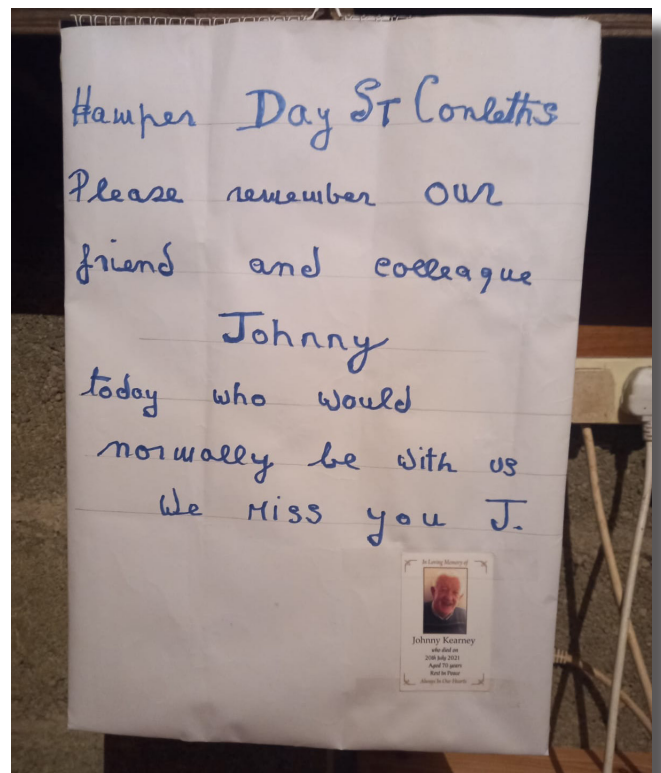 Hamper Day ST Conleths
Please remember our
friend and colleague
Johnny
today who would
normally be with us
We Miss you J.
In Loving Memory of
Johnny Kearney
who died on
20th July 2021
Aged 70 years
Rest in Peace
Always In Our Hearts